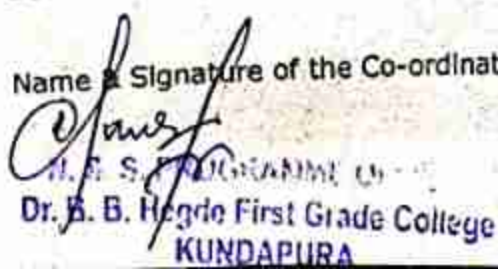 Name & Signature of the Co-ordinat
N. S. S. PROGRAMME
Dr. B. B. Hegde First Grade College
KUNDAPURA